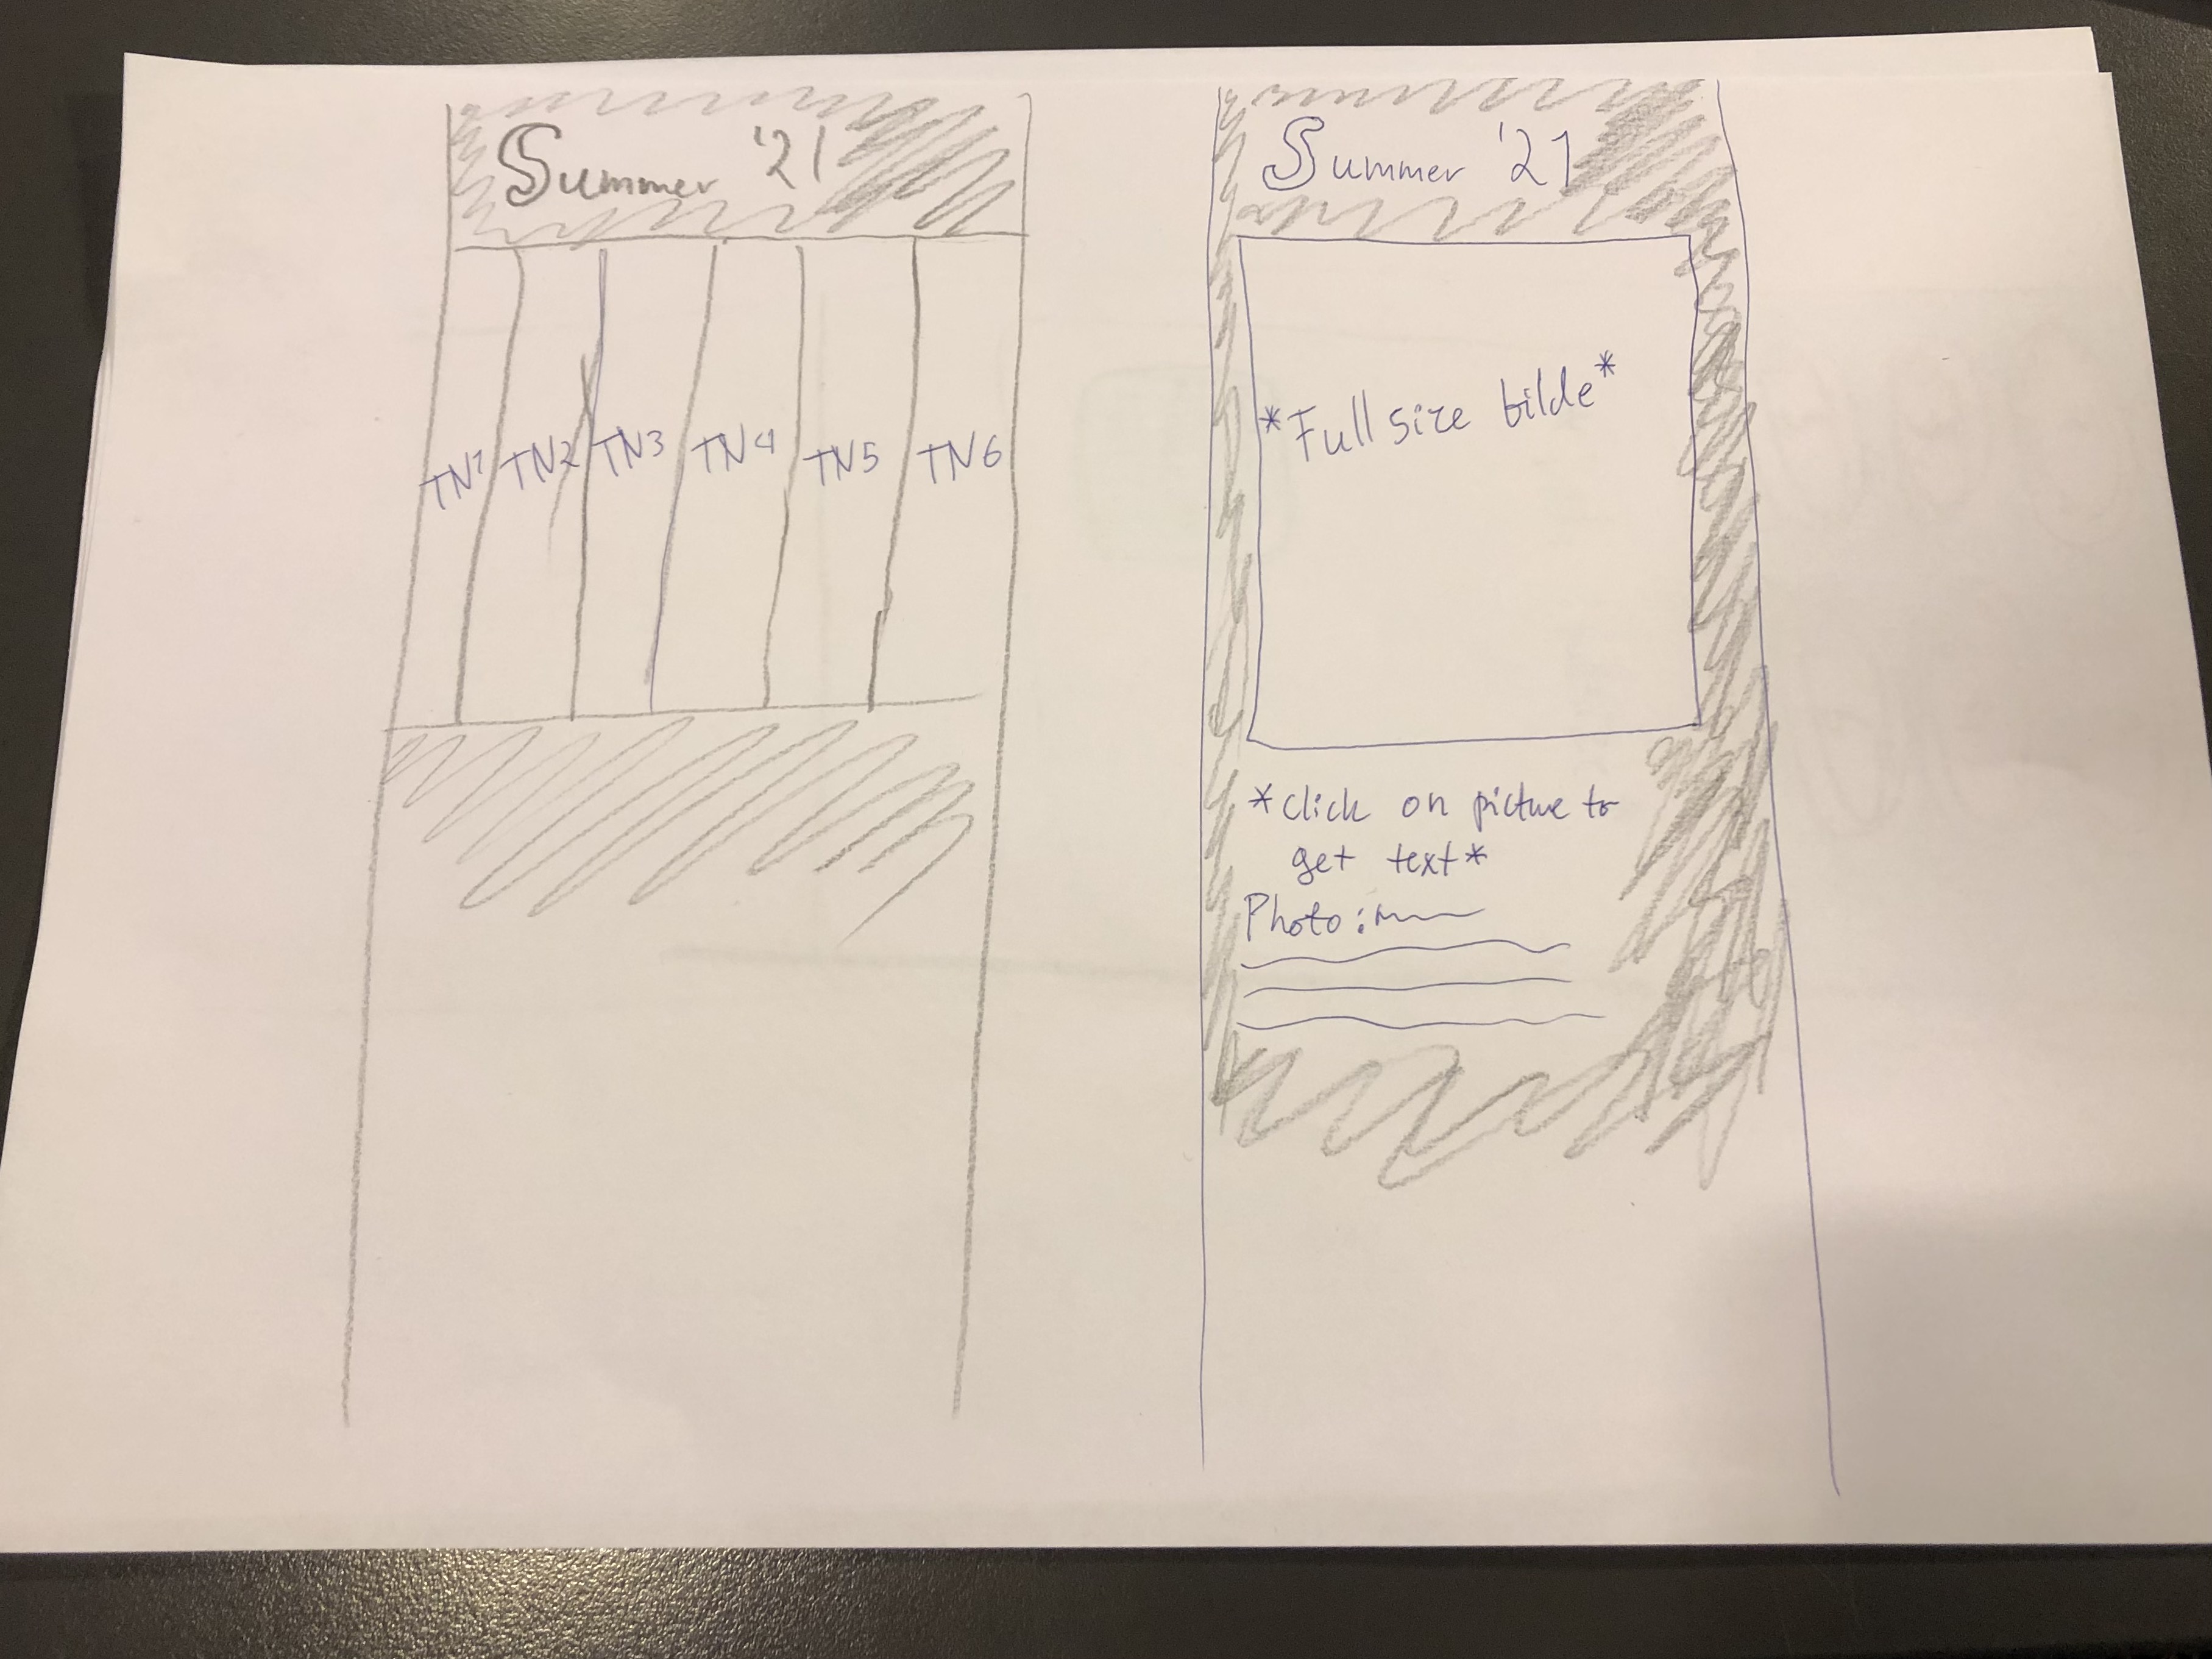 Summer '21
TN1 TN2 TN3 TN4 TN5 TN6
Summer '21
*Full size bilde*
*Click on picture to
get text*
Photo: